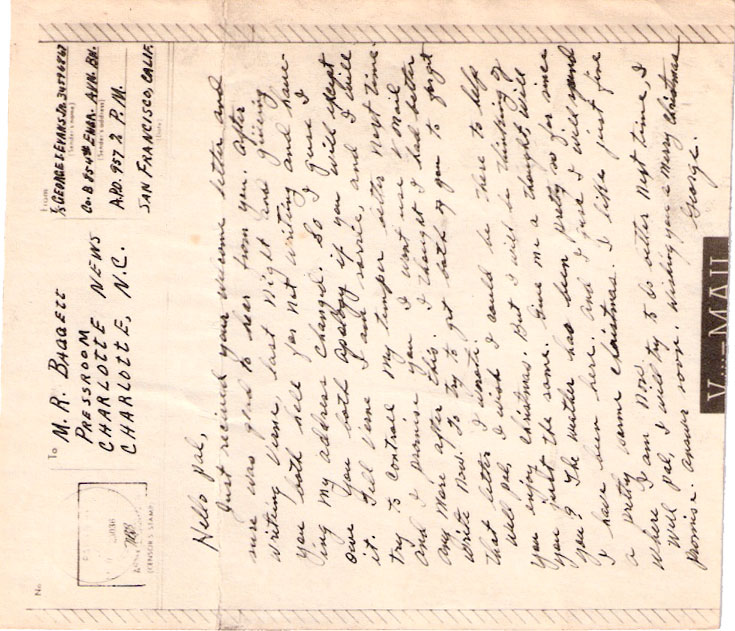 No.
(CENSOR'S STAMP)
To
M. R. BAGGETT
PRESSROOM
CHARLOTTE NEWS
CHARLOTTE, N.C.
From
GEORGE E EVANS JR. 34596867
(Sender's name)
Co. B 854th ENGR. AVN. BN.
(Sender's address)
A.P.O. 957 % P.M.
SAN FRANCISCO, CALIF.
(Date)
Hello Pal,
Just received your welcome letter and
sure was glad to hear from you. After
writing Verne, last night and giveing
you both hell for not writing and have-
ing my address changed. So I guess I
owe you both apology if you will exept
it. Tell Verne I am sorrie, and I will
try to controll my temper next time.
and I promise you I wont use V mail
any more after this. I thought I had better
write now. To try to get both of you to forget
that letter I wrote.
Well pal, I wish I could be there to help
you enjoy christmas. But I will be thinking of
you just the same. Give me a thought, will
you? The weather has been pretty so far since
I have been here. and I guse I will spend
a pretty warme christmas. I like just fine
where I am now.
Well pal, I will try to do better next time, I
promise. Answer soon. Wishing you a Merry Christmas
George.
V...-MAIL